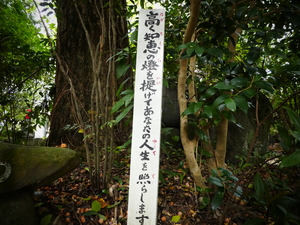 高く智慧の燈を提げてあなたの人生を照らします